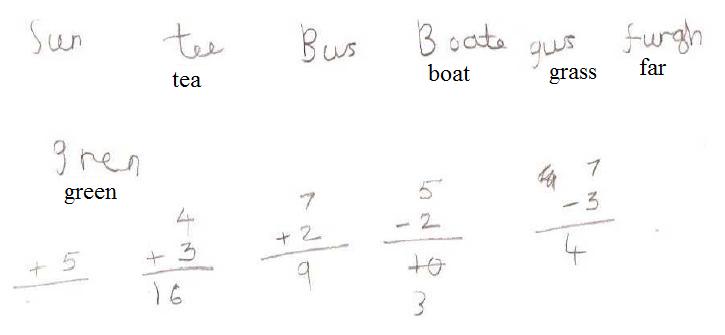 Sun tee Bus Boate gus furgh
tea boat grass far
gren
green
4 7 5 7
+ 5 + 3 + 2 - 2 - 3
16 9 10 4
3